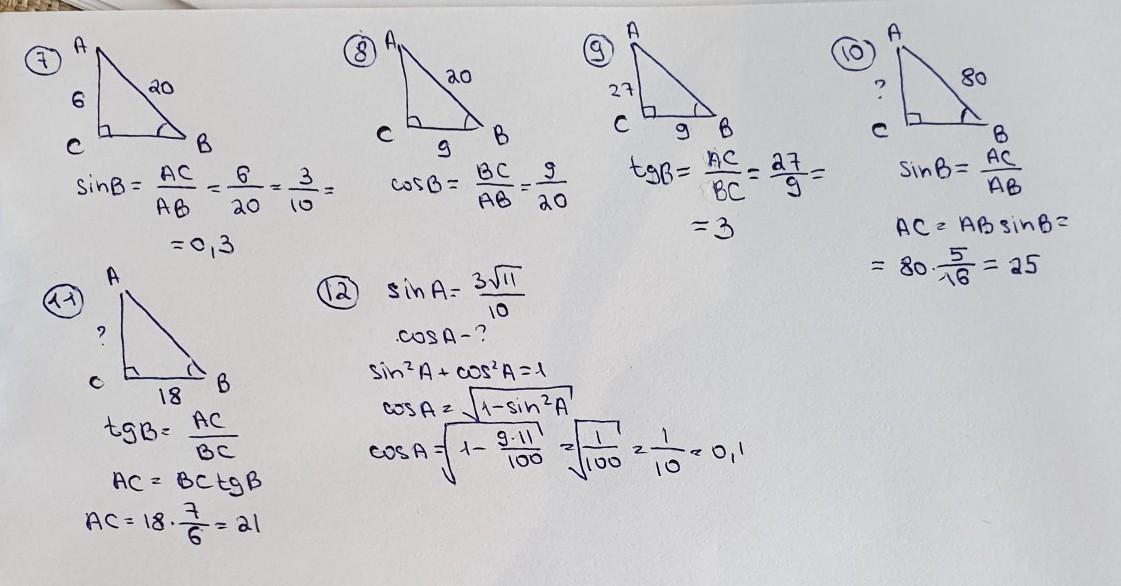 7
A
20
6
C
B
sinB = AC/AB = 6/20 = 3/10 =
= 0,3
8
A
20
C
9
B
cosB = BC/AB = 9/20
9
A
27
C
9
B
tgB = AC/BC = 27/9 =
= 3
10
A
?
80
C
B
sinB = AC/AB
AC = AB sinB =
= 80 · 5/16 = 25
11
A
?
C
18
B
tgB = AC/BC
AC = BC tgB
AC = 18 · 7/6 = 21
12
sin A = 3√11/10
cosA - ?
sin²A + cos²A = 1
cosA = √(1-sin²A)
cosA = √(1 - 9·11/100) = √(1/100) = 1/10 = 0,1